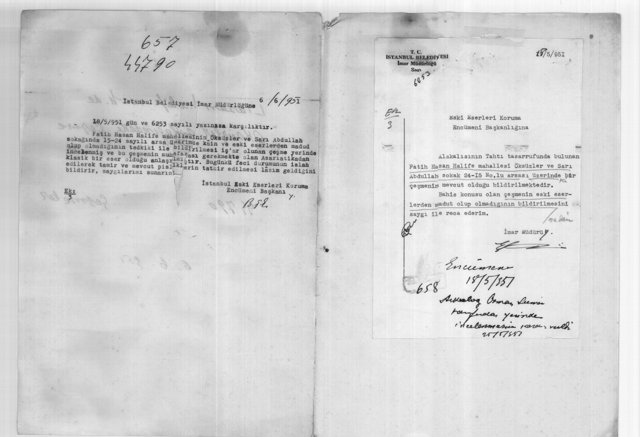 657
44790
İstanbul Belediyesi İmar Müdürlüğüne 6 /6 /951
18/5/951 gün ve 6253 sayılı yazınıza karşılıktır.
Fatih Hasan Halife mahallesinin Öksüzler ve Sarı Abdullah
sokağında 15-24 sayılı arsa üzerinde kain ve eski eserlerden madud
olup olmadığının tedkiki ile bildirilmesi iş'ar olunan çeşme yerinde
incelenmiş ve bu çeşmenin
klasik bir eser olduğu Bugünkü feci durumunun ıslah
edilerek tamir ve mevcut tatnir edilmesi lâzım geldiğini
bildirir, saygılarımı sunarım.
İstanbul Eski Eserleri Koruma
Encümeni Başkanı
T. C.
İSTANBUL BELEDİYESİ
İmar Müdürlüğü
Sayı
6253
18/5/951
3
Eski Eserleri Koruma
Encümeni Başkanlığına
Alakalısının Tahtı tasarrufunda bulunan
Fatih Hasan Halife mahallesi Öksüzler ve Sarı
Abdullah sokak 24-15 No.lu arsası üzerinde bir
çeşmenin mevcut olduğu bildirilmektedir.
Bahis konusu olan çeşmenin eski eser-
lerden madut olup olmadığının bildirilmesini
saygı ile rica ederim.
İmar Müdürü
Encümene
18/5/951
658
Arkeolog Osman
tarafından yerinde
incelenmesine karar verildi
25/5/951